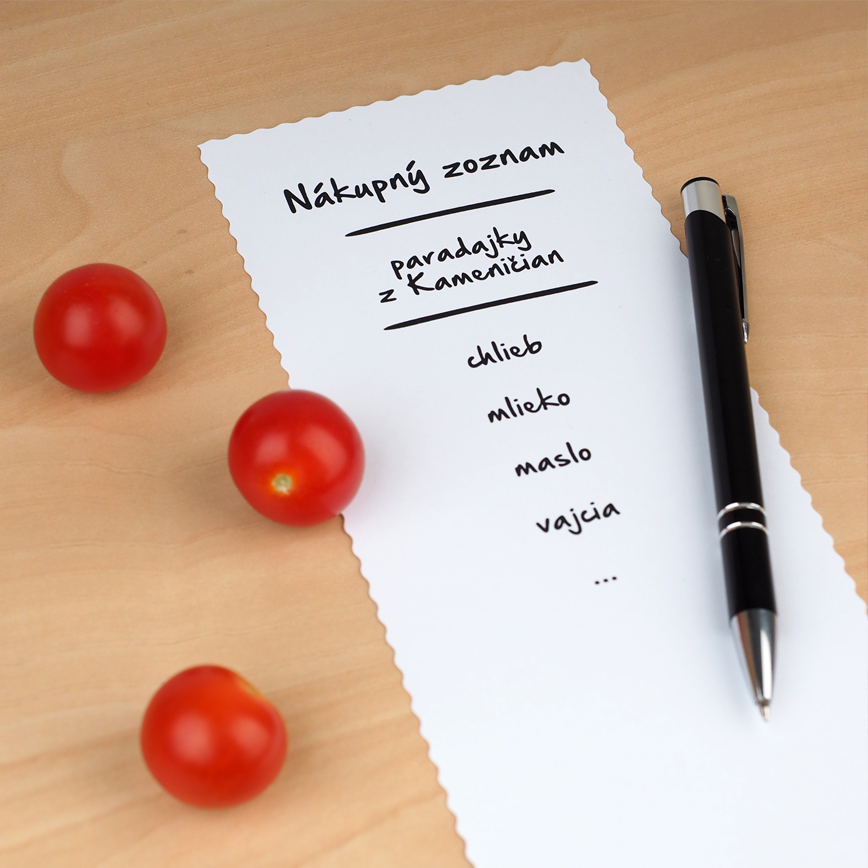 Nákupný zoznam
paradajky
z Kameničian
chlieb
mlieko
maslo
vajcia
...